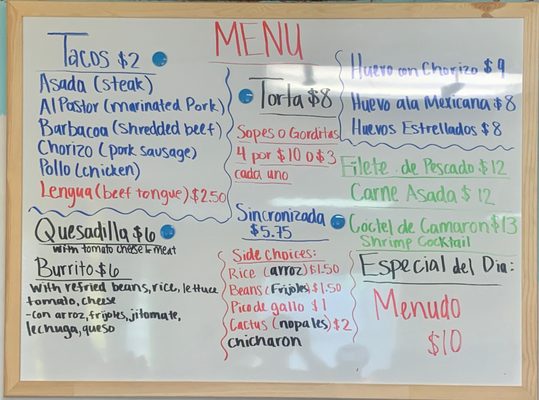 MENU
Tacos $2
Asada (steak)
Al Pastor (marinated Pork)
Barbacoa (shredded beef)
Chorizo (pork sausage)
Pollo (chicken)
Lengua (beef tongue) $2.50
Quesadilla $6
with tomato cheese & meat
Burrito $6
with refried beans, rice, lettuce
tomato, cheese
-con arroz, frijoles, jitomate,
lechuga, queso
Torta $8
Sopes o Gorditas
4 por $10 o $3
cada uno
Sincronizada
$5.75
Side choices:
Rice (arroz) $1.50
Beans (Frijoles) $1.50
Pico de gallo $1
Cactus (nopales) $2
chicharon
Huevo con Chorizo $9
Huevo ala Mexicana $8
Huevos Estrellados $8
Filete de Pescado $12
Carne Asada $12
Coctel de Camaron $13
Shrimp Cocktail
Especial del Dia:
Menudo
$10